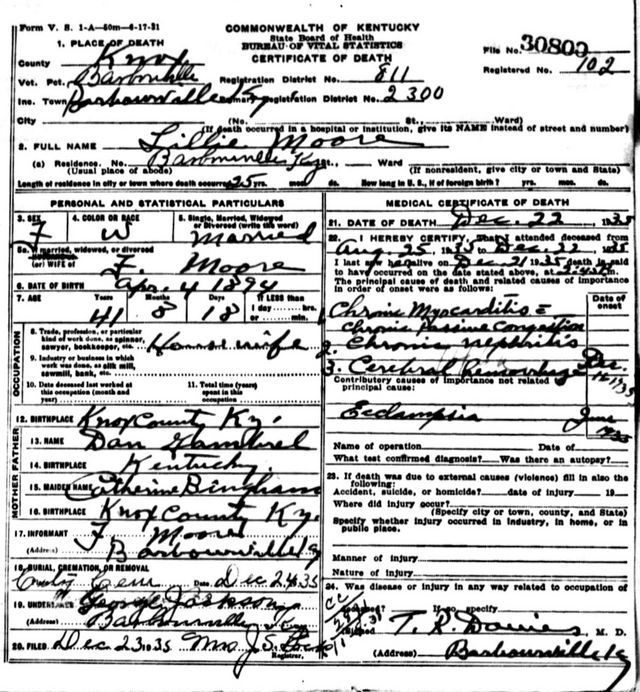 Form V. S. 1-A—50m—6-17-31
COMMONWEALTH OF KENTUCKY
State Board of Health
BUREAU OF VITAL STATISTICS
CERTIFICATE OF DEATH
1. PLACE OF DEATH
County Knox
File No. 30800
Vot. Pct. Barbourville Registration District No. 811
Registered No. 102
Inc. Town Barbourville Ky Primary Registration District No. 2300
City (No. St., Ward)
(If death occurred in a hospital or institution, give its NAME instead of street and number)
2. FULL NAME Lillie Moore
(a) Residence. No. Barbourville Ky St., Ward
(Usual place of abode) (If nonresident, give city or town and State)
Length of residence in city or town where death occurred 25 yrs. mos. ds. How long in U. S., if of foreign birth? yrs. mos. ds.
PERSONAL AND STATISTICAL PARTICULARS
3. SEX 4. COLOR OR RACE 5. Single, Married, Widowed or Divorced (write the word)
F W Married
5a. If married, widowed, or divorced
(or) WIFE of F. Moore
6. DATE OF BIRTH Apr. 4 1894
7. AGE Years Months Days If LESS than
1 day hrs.
41 8 18 or min.
OCCUPATION
8. Trade, profession, or particular
kind of work done, as spinner,
sawyer, bookkeeper, etc. Housewife
9. Industry or business in which
work was done, as silk mill,
sawmill, bank, etc.
10. Date deceased last worked at
this occupation (month and
year)
11. Total time (years)
spent in this
occupation
12. BIRTHPLACE Knox County Ky.
MOTHER FATHER
13. NAME Dan Gambrel
14. BIRTHPLACE Kentucky
15. MAIDEN NAME Catherine Bingham
16. BIRTHPLACE Knox County Ky.
17. INFORMANT F Moore
(Address) Barbourville Ky
18. BURIAL, CREMATION, OR REMOVAL
Cem Date Dec 24 35
19. UNDERTAKER George Jackson
Barbourville Ky
20. FILED Dec 23 35 Mrs J. S.
Registrar.
MEDICAL CERTIFICATE OF DEATH
21. DATE OF DEATH Dec. 22 1935
22. I HEREBY CERTIFY, That I attended deceased from
Aug. 25, 1935 to Dec. 22, 1935
I last saw alive on Dec 21 1935 death is said
to have occurred on the date stated above, at m.
The principal cause of death and related causes of importance
in order of onset were as follows:
Date of
onset
1 Chronic Myocarditis =
Chronic Passive Congestion
2. Chronic nephritis
3. Cerebral Hemorrhage Dec.
Contributory causes of importance not related
principal cause:
Eclampsia June
Name of operation Date of
What test confirmed diagnosis? Was there an autopsy?
23. If death was due to external causes (violence) fill in also the
following:
Accident, suicide, or homicide? date of injury 19
Where did injury occur?
(Specify city or town, county, and State)
Specify whether injury occurred in industry, in home, or in
public place.
Manner of injury
Nature of injury
24. Was disease or injury in any way related to occupation of
deceased? If so, specify
(Signed) T. R. Davies, M. D.
(Address) Barbourville Ky